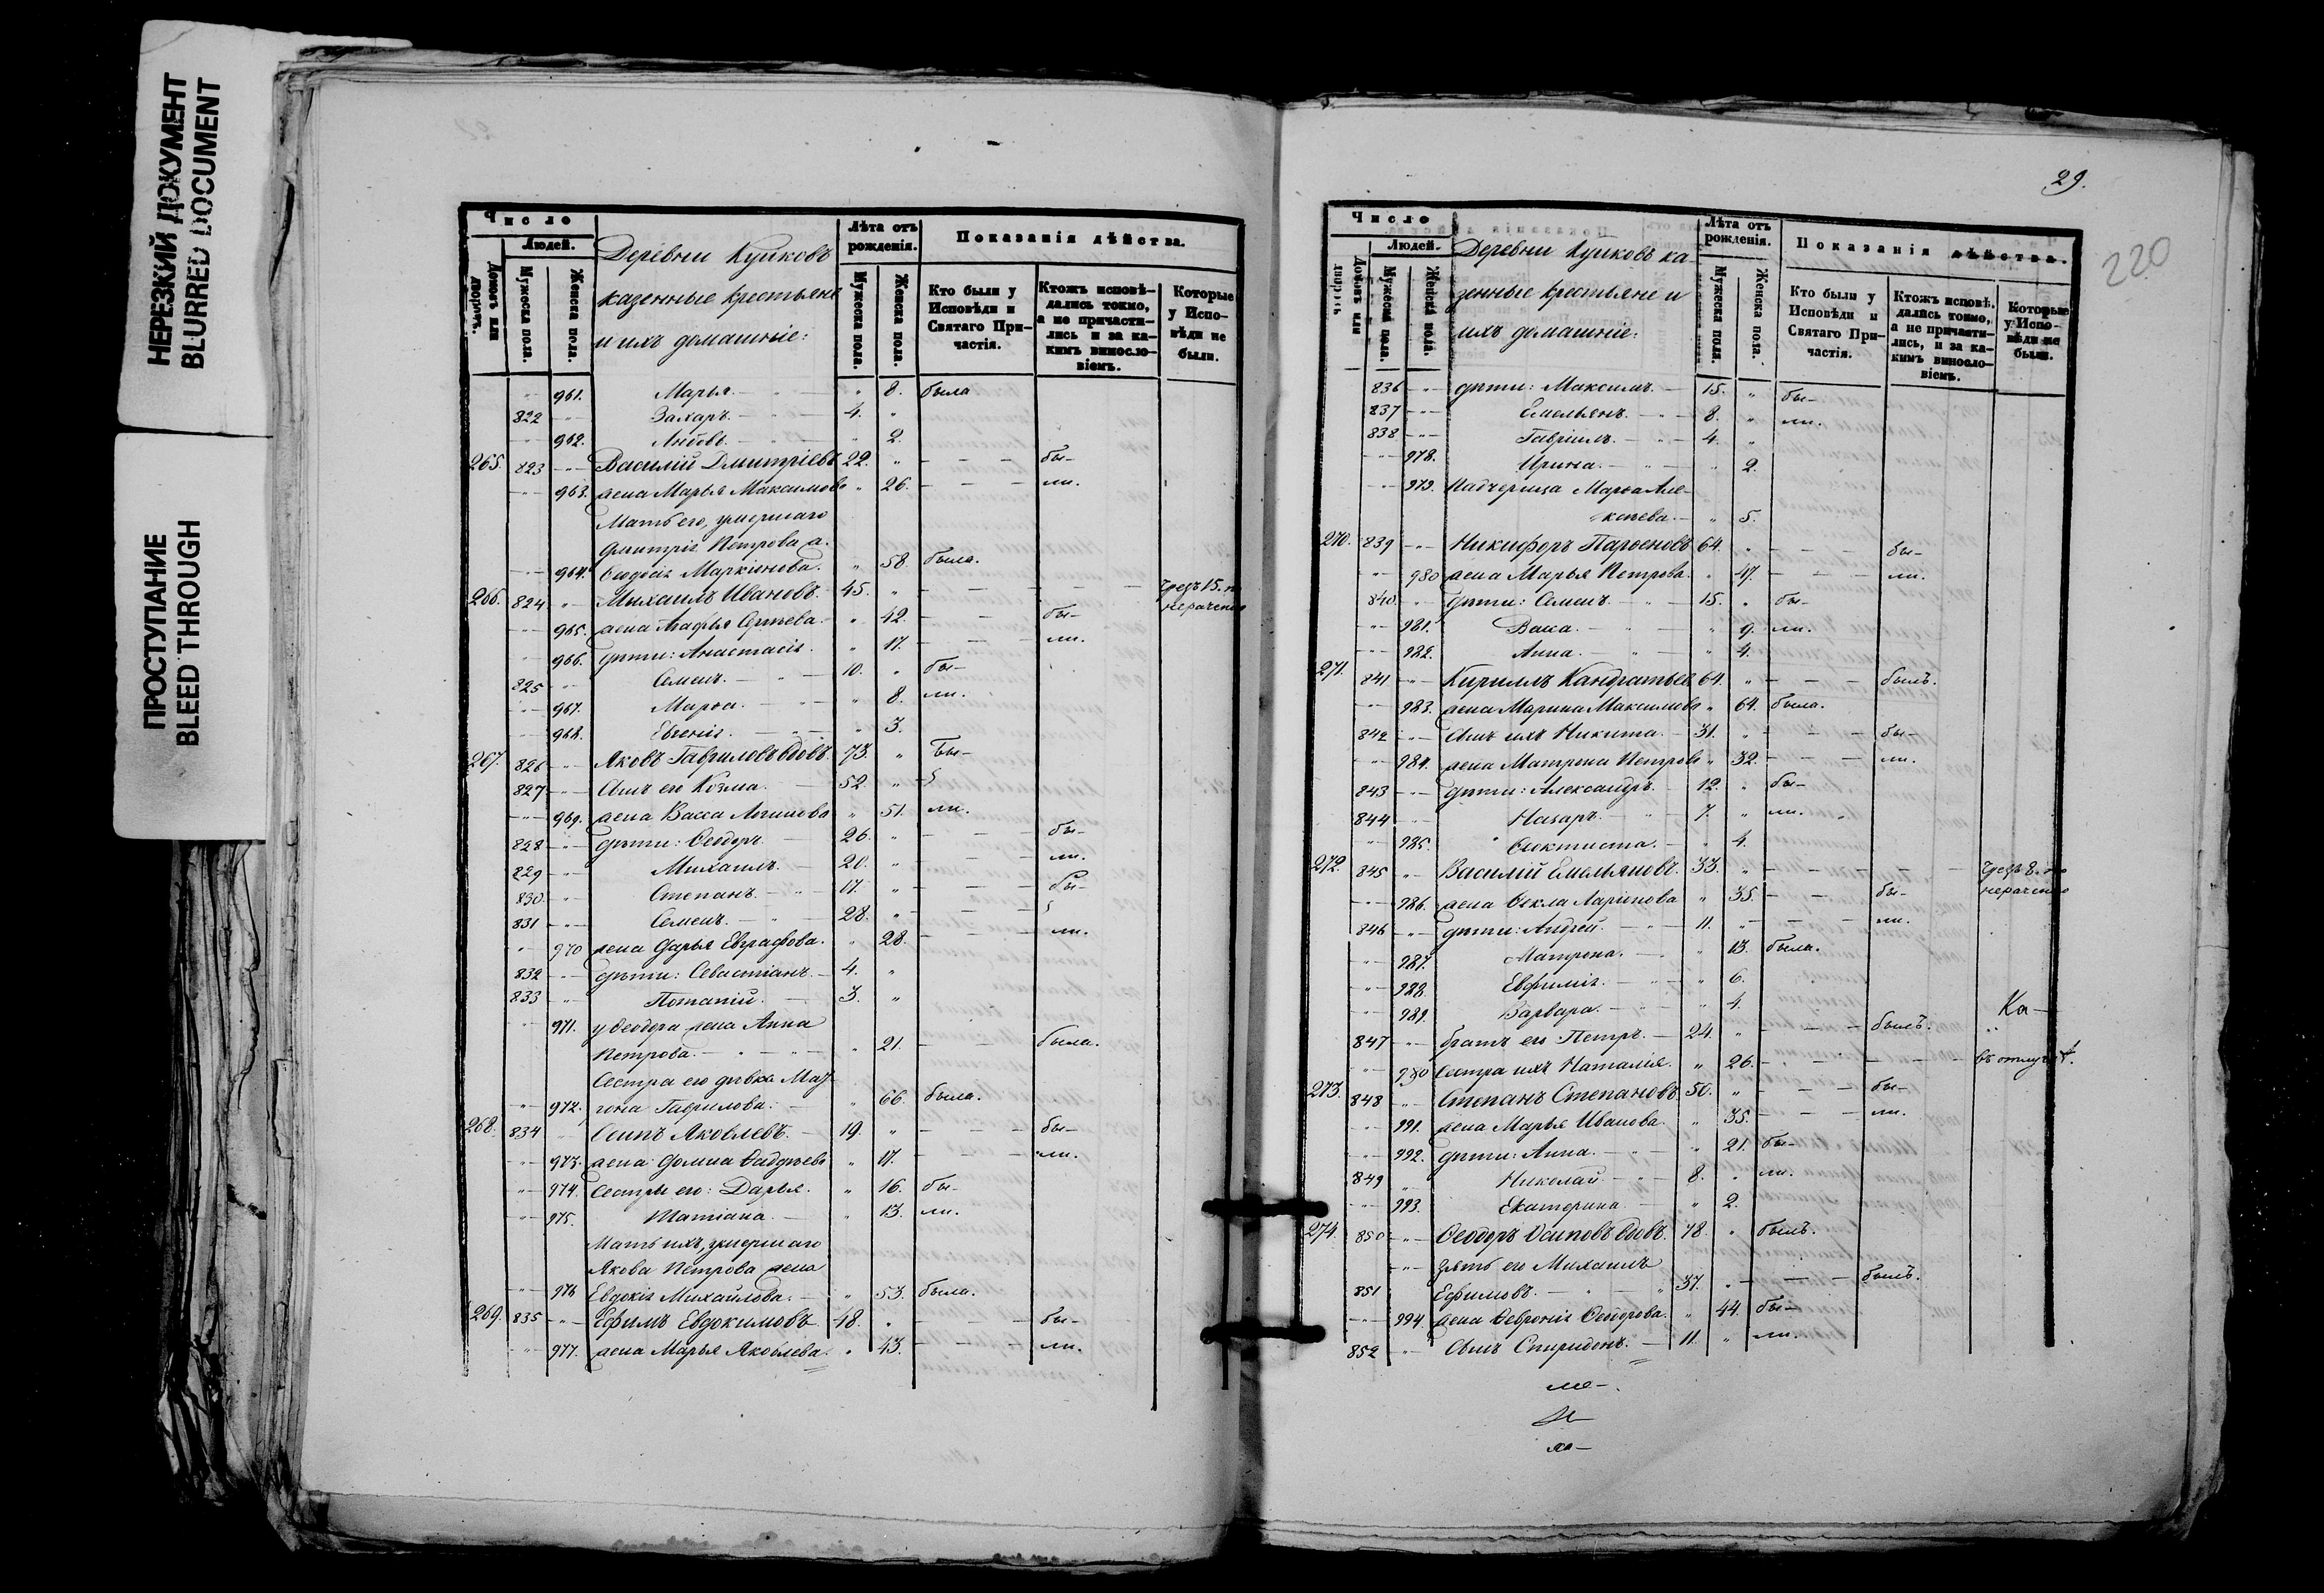 НЕРЕЗКИЙ ДОКУМЕНТ
BLURRED DOCUMENT
ПРОСТУПАНИЕ
BLEED THROUGH
Число
Людей.
Домовъ или дворовъ.
Мужеска пола.
Женска пола.
Деревни Куйковъ
казенные крестьяне
и ихъ домашніе:
Лѣта отъ рожденія.
Мужеска пола.
Женска пола.
Показанія дѣйства.
Кто были у Исповѣди и Святаго Причастія.
Ктожъ исповѣдались токмо, а не причастились и за какимъ винословіемъ.
Которые у Исповѣди не были.
961. Марья. 8. была
822 Захаръ. 4.
962. Любовь. 2.
265. 823 Василій Дмитріевъ 22. бы-
963. жена Марья Максимова 26. ли.
Мать его, умершаго
Дмитрія Петрова ж.
964. Ѳеодосія Маркіянова. 58. была.
266. 824 Михаилъ Ивановъ. 45. чрезъ 15. л. нераченію
965. жена Агафья Сергѣева. 42. бы-
966. дѣти: Анастасія. 17. ли.
825 Семенъ. 10. бы-
967. Марѳа. 8. ли.
968. Евгенія. 3.
267. 826 Яковъ Гавриловъ вдовъ. 73. Бы-
827 Сынъ его Козма. 52.
969. жена Васса Логинова 51. ли.
828 дѣти: Ѳеодоръ. 26. бы-
829 Михаилъ. 20. ли.
830 Степанъ. 17. бы-
831 Семенъ. 28.
970 жена Дарья Евграфова. 28. ли.
832 дѣти: Севастіанъ. 4.
833 Потапій. 3.
971. у Ѳеодора жена Анна
Петрова. 21. была.
Сестра его дѣвка Мат-
972. рона Гаврилова. 66. была.
268. 834 Осипъ Яковлевъ. 19. бы-
973. жена Домна Ѳаддѣева 17. ли.
974. Сестры его: Дарья. 16. бы-
975. Татіана. 13. ли.
Мать ихъ, умершаго
Якова Петрова жена
976 Евдокія Михайлова. 53. была.
269. 835 Ефимъ Евдокимовъ. 48. бы-
977. жена Марья Яковлева. 43. ли.
29.
220
Число
Людей.
Домовъ или дворовъ
Мужеска пола.
Женска пола.
Деревни Куйковъ ка-
зенные крестьяне и
ихъ домашніе:
Лѣта отъ рожденія.
Мужеска пола.
Женска пола.
Показанія дѣйства.
Кто были у Исповѣди и Святаго Причастія.
Ктожъ исповѣдались токмо, а не причастились, и за какимъ винословіемъ.
Которые у Исповѣди не были.
836 дѣти: Максимъ. 15. бы-
837 Емельянъ. 8. ли.
838 Гавріилъ. 4.
978. Ирина. 2.
979. Падчерица Марѳа Але-
ксѣева. 5.
270. 839 Никифоръ Парѳеновъ 64. бы-
980 жена Марья Петрова. 47. ли.
840. дѣти: Семенъ. 15. бы-
981. Васса. 9. ли.
982. Анна. 4.
271. 841 Кириллъ Кандратьевъ 64. былъ.
983. жена Марина Максимова 64. была.
842 Сынъ ихъ Никита. 31. бы-
984. жена Матрона Петрова 32. ли.
843 дѣти: Александръ. 12. бы-
844 Назаръ. 7. ли.
985. Ѳеоктиста. 4.
272. 845 Василій Емельяновъ. 33. чрезъ 8. л. нераченію
986. жена Ѳекла Ларіонова 35. бы-
846 дѣти: Андрей. 11. ли.
987. Матрона. 13. была.
988. Евфимія. 6.
989. Варвара. 4. Ка-
847 братъ его Петръ. 24. былъ.
990 Сестра ихъ Наталія. 26. въ отлучкѣ.
273. 848 Степанъ Степановъ 50. бы-
991. жена Марья Иванова. 35. ли.
992. дѣти: Анна. 21. бы-
849 Николай. 8. ли.
993. Екатерина 2.
274. 850 Ѳеодоръ Осиповъ вдовъ. 78. былъ.
зять его Михаилъ
851 Ефимовъ. 37. былъ.
994 жена Ѳевронія Ѳеодорова. 44. бы-
852 Сынъ Спиридонъ. 11. ли.